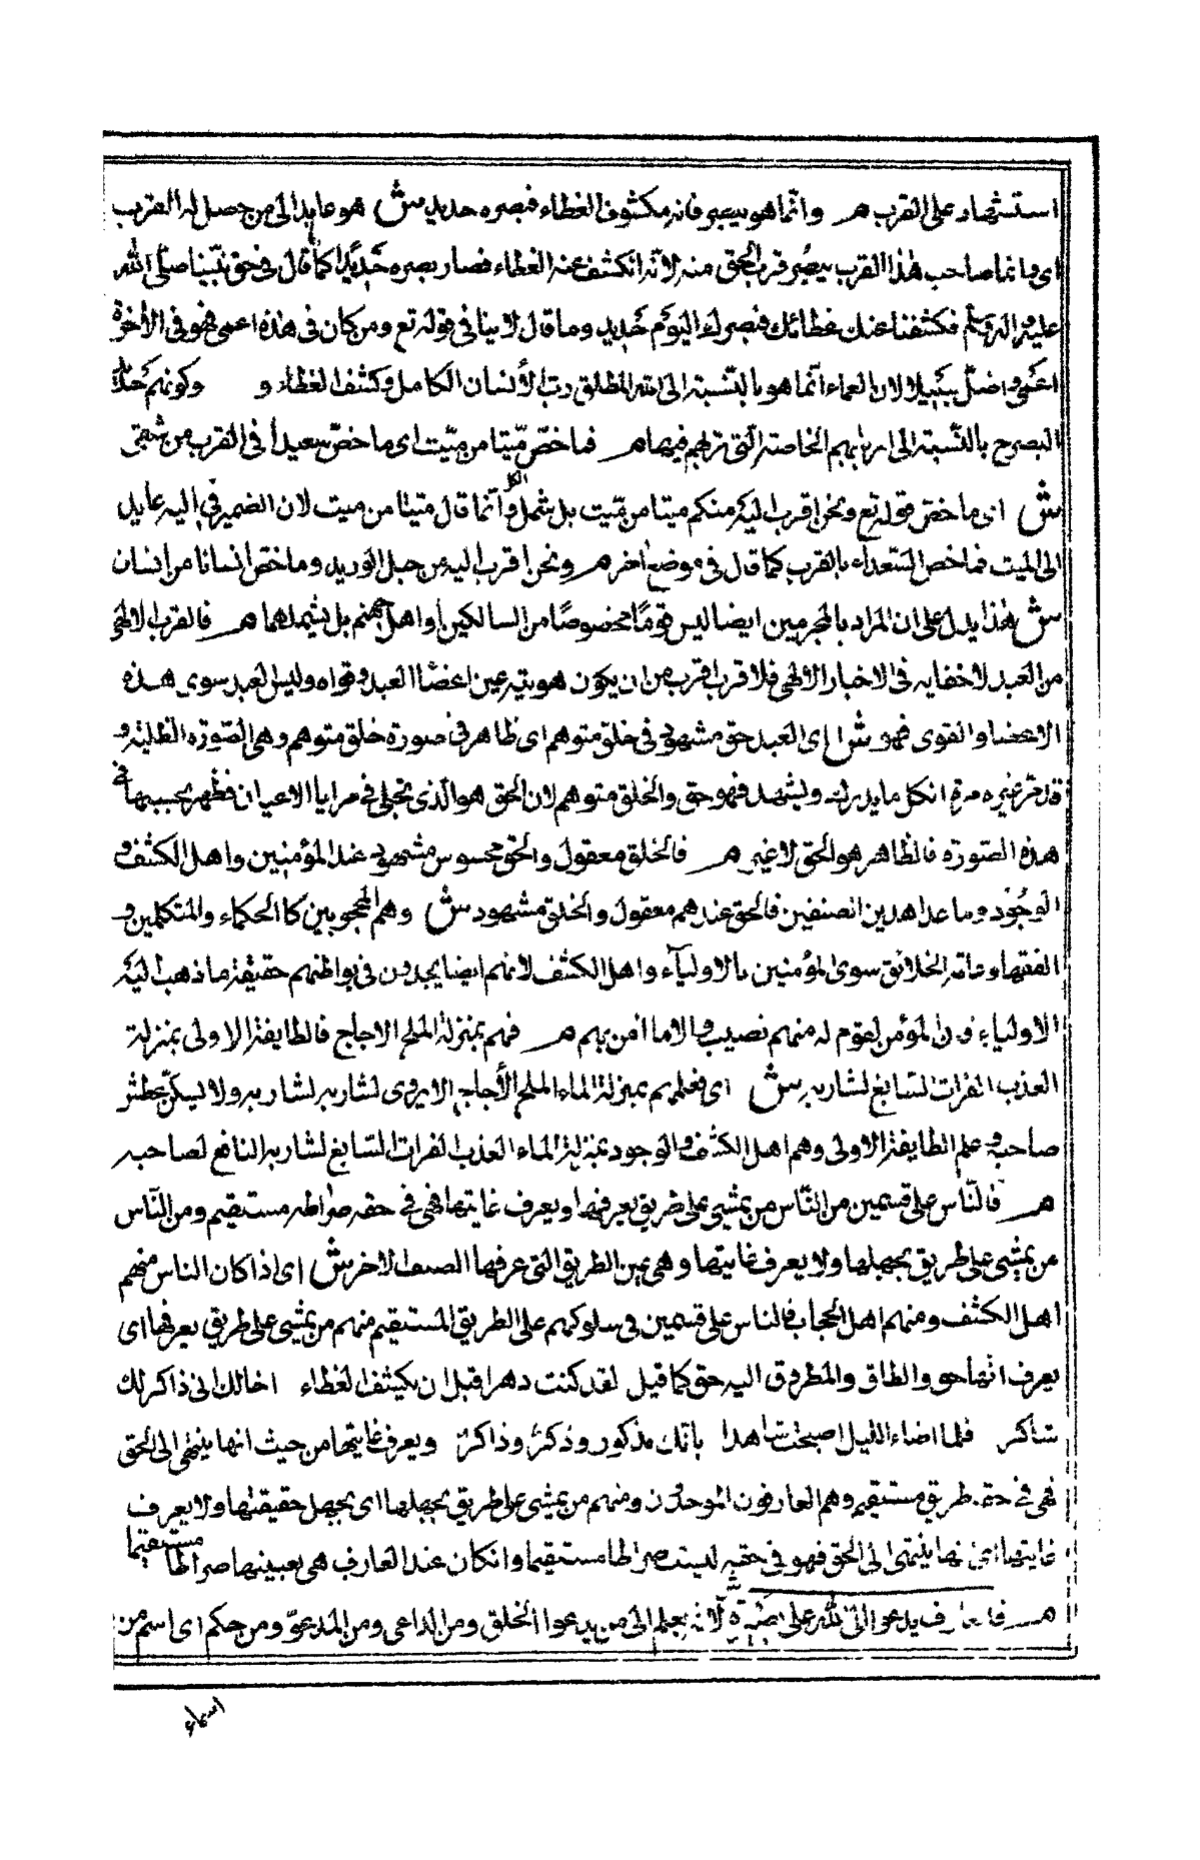 استشهاد على القرب هر وانما هو يبصر فانه مكشوف الغطاء فبصره حديد ش هو عايد الى من حصل له القرب
اى وانما صاحب هذا القرب يبصر قرب الحق منه لانه انكشف عنه الغطاء فصار بصره حديدا كما قال فى حق نبينا صلى الله
عليه واله وسلم فكشفنا عنك غطائك فبصرك اليوم حديد وما قال لا ينافى قوله تع ومن كان فى هذه اعمى فهو فى الأخرة
اعمى واضل سبيلا لان العماء انما هو بالنسبة الى الله المطلق رب الأنسان الكامل وكشف الغطاء و وكونهم حداد
البصر ح بالنسبة الى اربابهم الخاصة التى تربهم فيها هر فما خص ميتا من ميت اى ما خص سعيدا فى القرب من شقى
ش اى ما خص قوله تع ونحن اقرب اليه منكم ميتا من ميت بل شمل الكل وانما قال ميتا من ميت لان الضمير فى اليه عايد
الى الميت فما خص السعداء بالقرب كما قال فى موضع اخر هر ونحن اقرب اليه من حبل الوريد وما خص انسانا من انسان
ش هذا يدل على ان المراد بالمجرمين ايضا ليس قوما مخصوصا من السالكين او اهل جهنم بل يشملهما هر فالقرب الالهى
من العبد لا خفا به فى الاخبار الالهى فلا قرب اقرب من ان يكون هويته عين اعضاا العبد وقواه وليس العبد سوى هذه
الاعضا والقوى فهو ش اى العبد حق مشهود فى خلق متوهم اى ظاهر فى صورة خلق متوهم وهى الصورة الظلية و
قد مر غير مرة ان كل ما يدرك ويشهد فهو حق والخلق متوهم لان الحق هو الذى تجلى فى مرايا الاعيان فظهر بحسبها فى
هذه الصورة فالظاهر هو الحق لا غير هر فالخلق معقول والحق محسوس مشهود عند المؤمنين واهل الكشف و
الوجود وما عدا هذين الصنفين فالحق عندهم معقول والخلق مشهود ش وهم المحجوبين كالحكماء والمتكلمين و
الفقهاء وعامة الخلائق سوى المؤمنين بالاولياء واهل الكشف لانهم ايضا يجدون فى بواطنهم حقيقة ما ذهب اليه
الاولياء المؤمن لقوم له منهم نصيب والا ما امن بهم هر فهم بمنزلة الملح الاجاج فالطايفة الاولى بمنزلة
العذب الفرات السايغ لشاربه ش اى فعلمهم بمنزلة الماء الملح الأجاج الا يروى لشاربه لشاربه ولا يسكن عطش
صاحبه و علم الطايفة الاولى وهم اهل الكشف والوجود بمنزلة الماء العذب الفرات السايغ لشاربه النافع لصاحبه
هر فالناس على قسمين من الناس من يمشى على طريق يعرفها ويعرف غايتها فهى فى حقه صراط مستقيم ومن الناس
من يمشى على طريق يجهلها ولا يعرف غايتها وهى عين الطريق التى عرفها الصنف الاخر ش اى اذا كان الناس منهم
اهل الكشف ومنهم اهل الحجاب فالناس على قسمين فى سلوكهم على الطريق المستقيم منهم من يمشى على طريق يعرفها اى
يعرف انها حق والطاق والمطروق اليه حق كما قيل لقد كنت دهرا قبل ان يكشف الغطاء اخالك انى ذاكر لك
شاكر فلما اضاء الليل اصبحت شاهدا بانك مذكور وذكر وذاكر ويعرف غايتها من حيث انها ينتهى الى الحق
فهى فى حقه طريق مستقيم وهم العارفون الموحدون ومنهم من يمشى على طريق يجهلها اى يجهل حقيقتها ولا يعرف
غايتها اى انها ينتهى الى الحق فهو فى حقه ليست صراطا مستقيما وان كان عند العارف هى بعينها صراطا مستقيما
هر فالعارف يدعو الى الله على بصيرة لانه يعلم الى من يدعوا الخلق ومن الداعى ومن المدعو ومن حكم اى اسم من
اسماء